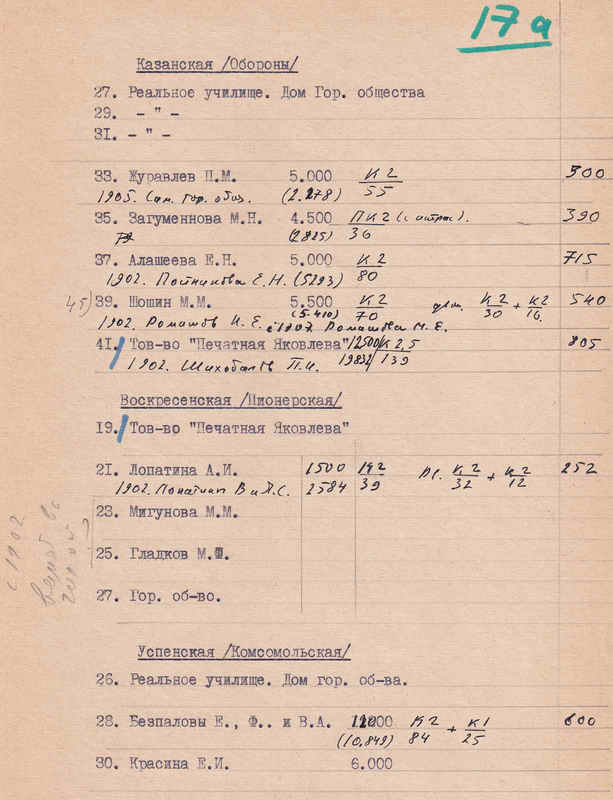 17а
Казанская /Обороны/
27. Реальное училище. Дом Гор. общества
29. - " -
31. - " -
33. Журавлев П.М. 5.000 К2/55 300
1905. Сам. гор. общ. (2.278)
35. Загуменнова М.Н. 4.500 ПК2 (с антрес). 390
(2825) 36
37. Алашеева Е.Н. 5.000 К2/80 715
1902. Постникова Е.Н. (5293)
45) 39. Шошин М.М. 5.500 К2/70 К2/30 + К2/16. 540
(5.410)
1902. Ромашов И.Е. с 1907. Ромашова М.Е.
41. Тов-во "Печатная Яковлева" 12500 К2,5 805
1902. Шихобалов П.И. 19832 139
Воскресенская /Пионерская/
19. Тов-во "Печатная Яковлева"
21. Лопатина А.И. 1500 1К2 К2/32 + К2/12 252
1902. В и А.С. 2584 39
23. Мигунова М.М.
25. Гладков М.Ф.
27. Гор. об-во.
с 1902
Успенская /Комсомольская/
26. Реальное училище. Дом гор. об-ва.
28. Безпаловы Е., Ф.. и В.А. 11200 К2/84 + К1/25 600
(10.849)
30. Красина Е.И. 6.000